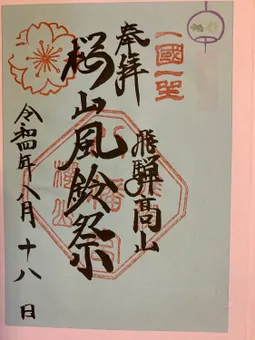 一國一社
奉拝
飛騨高山
桜山風鈴祭
令和四年八月十八日